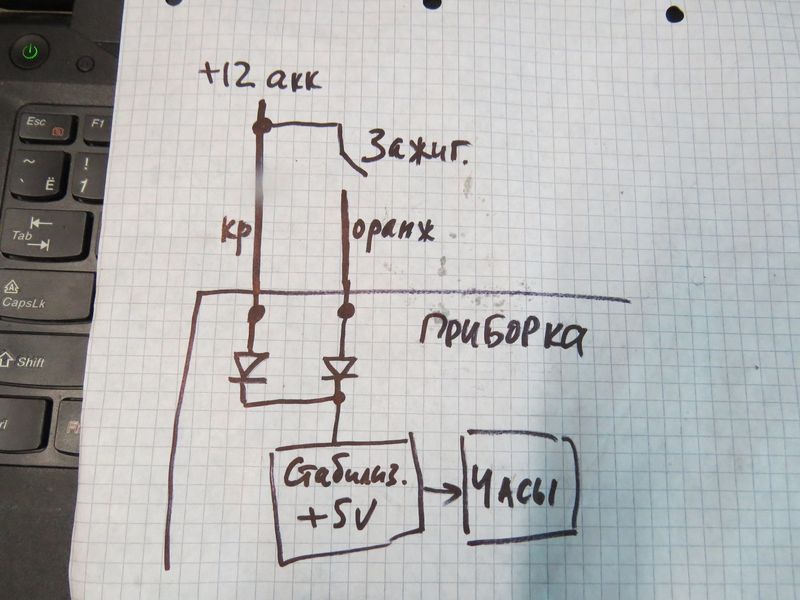 +12 акк
Зажиг.
кр
оранж
ПРИБОРКА
Стабилиз.
+5V
ЧАСЫ
Esc
F1
~
!
`
Ё
1
Tab
CapsLk
Shift